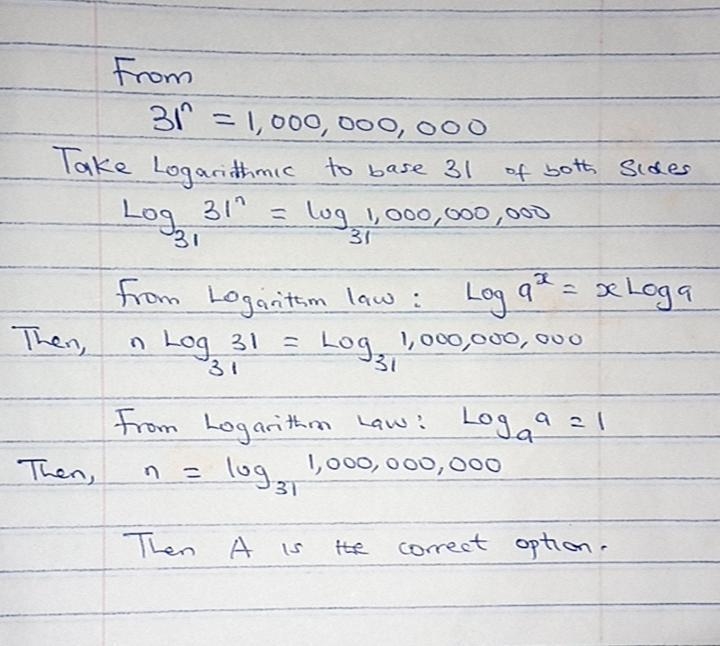 From
31ⁿ = 1,000,000,000
Take Logarithmic to base 31 of both Sides
Log₃₁ 31ⁿ = log₃₁ 1,000,000,000
From Logarithm law : Log aˣ = x Log a
Then, n Log₃₁ 31 = Log₃₁ 1,000,000,000
From Logarithm Law : Logₐ a = 1
Then, n = log₃₁ 1,000,000,000
Then A is the correct option.